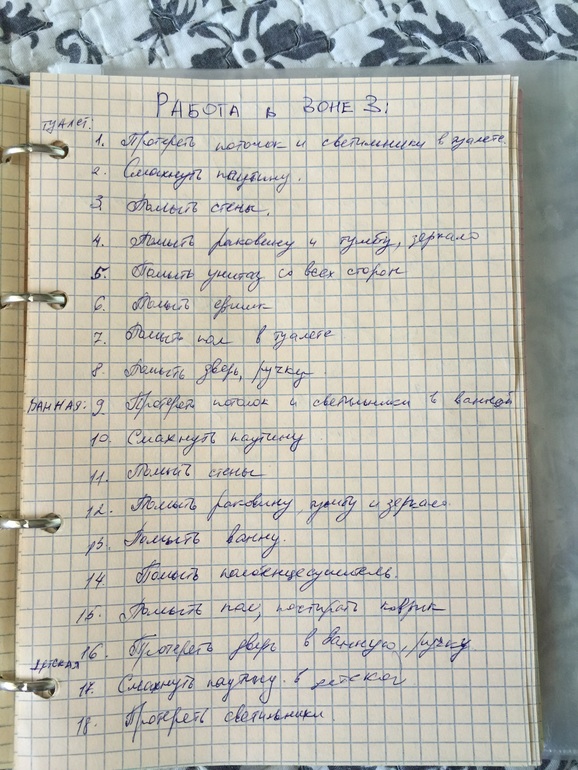 РАБОТА в ЗОНЕ 3:
ТУАЛЕТ:
1. Протереть потолок и светильники в туалете.
2. Смахнуть паутину.
3. Помыть стены.
4. Помыть раковину и тумбу, зеркало
5. Помыть унитаз со всех сторон
6. Помыть
7. Помыть пол в туалете
8. Помыть дверь, ручку
ВАННАЯ: 9. Протереть потолок и светильники в ванной
10. Смахнуть паутину
11. Помыть стены
12. Помыть раковину, тумбу и зеркало.
13. Помыть ванну.
14. Помыть полотенцесушитель.
15. Помыть пол, постирать коврик
16. Протереть дверь в ванную, ручку.
Детская
17. Смахнуть паутину в детской
18. Протереть светильники